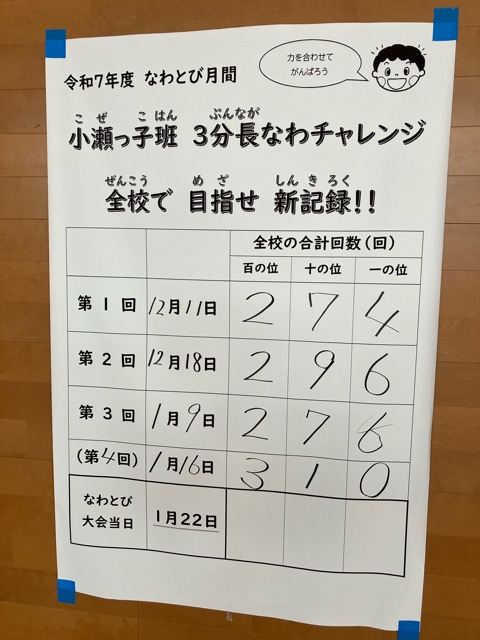 力を合わせて
がんばろう
令和7年度 なわとび月間
こぜ こはん ぷんなが
小瀬っ子班 3分長なわチャレンジ
ぜんこう めざ しんきろく
全校で 目指せ 新記録!!
全校の合計回数(回)
百の位 十の位 一の位
第1回 12月11日 2 7 4
第2回 12月18日 2 9 6
第3回 1月9日 2 7 6
(第4回) 1月16日 3 1 0
なわとび
大会当日 1月22日